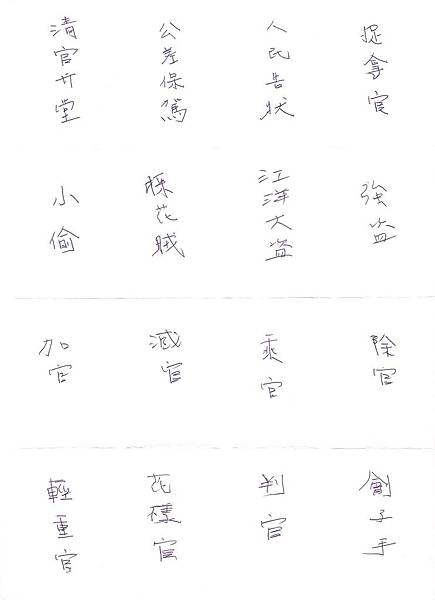 清官升堂
公差保駕
人民告狀
捉拿官
小偷
採花賊
江洋大盗
強盗
加官
減官
乘官
除官
輕重官
花樣官
判官
劊子手